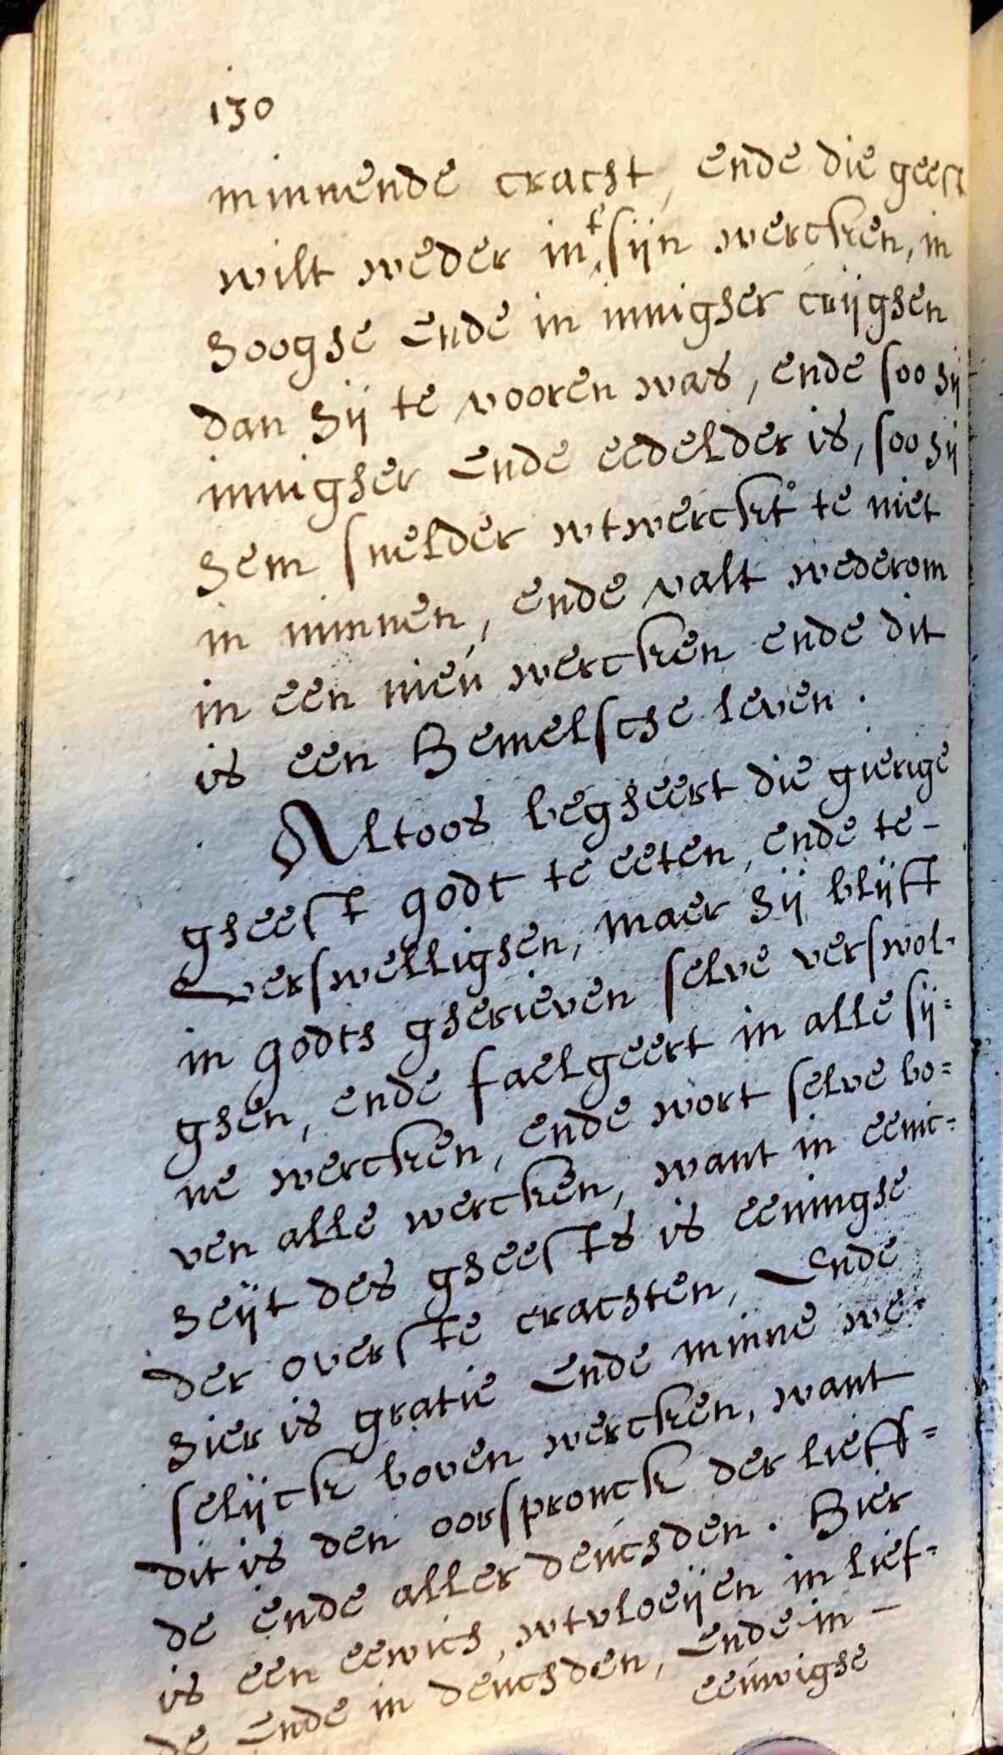 130
minnende cracht, ende die geest
wilt weder int sijn wercken, in
hooghe ende in innigher crijghen
dan hij te vooren was, ende soo hij
innigher ende eedelder is, soo hij
hem snelder wtwerckt te niet
in minnen, ende valt wederom
in een nieu wercken ende dit
is een Hemelsche leven.
Altoos begheert die gierige
gheest godt te eeten, ende te-
verswellighen, maer hij blijft
in godts gherieven selve verswol-
ghen, ende faelgeert in alle sij=
ne wercken, ende wort selve bo=
ven alle wercken, want in eenic=
heijt des gheests is eeninghe
der overste crachten, Ende
hier is gratie ende minne we=
selijck boven wercken, want
dit is den oorspronck der lieff=
de ende aller deuchden. Hier
is een eewich wtvloeijen in lief=
de ende in deuchden, ende in-
eeuwighe